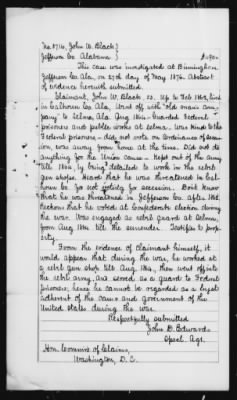 No. 8714, John W. Black }
Jefferson Co. Alabama } $490.
This case was investigated at Birmingham
Jefferson Co. Ala, on 27th day of May 1876. Abstract
of evidence herewith submitted.
Claimant, John W. Black, Up to Feb. 1864, lived
in Calhoun Co. Ala. Went off with "old man's com-
pany" to Selma, Ala. Aug. 1864 - Guarded Federal
prisoners and public works at Selma. Was kind to the
Federal prisoners - did not vote on Ordinance of Secess-
ion, was away from home at the time. Did not do
anything for the Union cause - Kept out of the army
till 1864, by being detailed to work in the rebel
gun shops. Heard that he was threatened in Cal-
houn Co. for not voting for secession. Don't know
that he was threatened in Jefferson Co. after
that he voted at Confederate Election during
the war. Was engaged as rebel guard at Selma,
from Aug. 1864 till the surrender. Testifies to prop-
erty.
From the evidence of claimant himself, it
would appear that during the war, he worked at
a rebel gun shop till Aug. 1864, then went into
the rebel army, and served as a guard to Federal
prisoners, hence he cannot be regarded as a loyal
adherent of the cause and government of the
United States during the war.
Respectfully submitted
John D. Edwards
Specl. Agt.
Hon. Comrs. of Claims,
Washington, D. C.